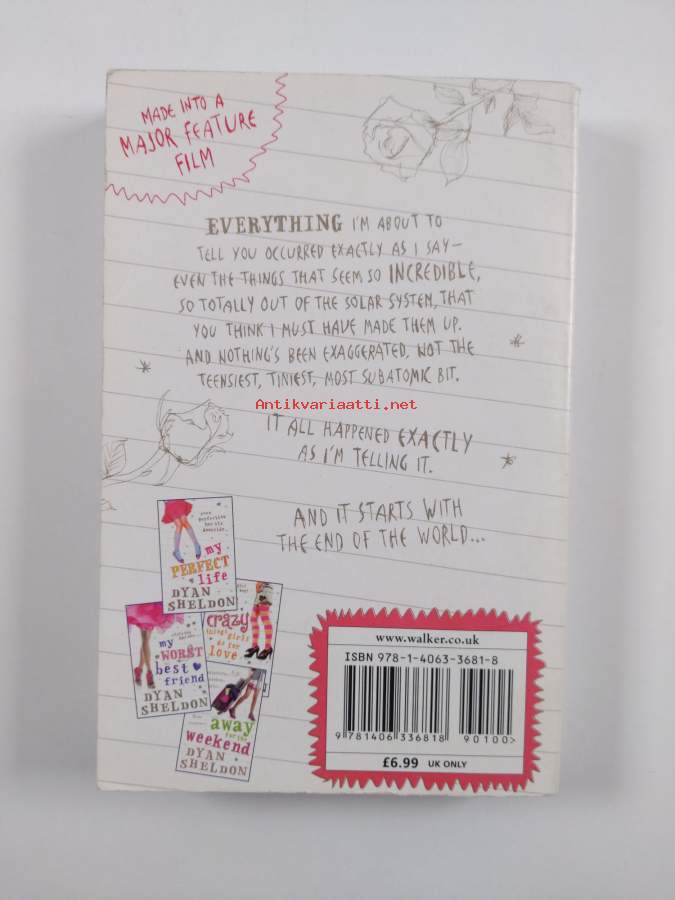 MADE INTO A
MAJOR FEATURE
FILM
EVERYTHING I'M ABOUT TO
TELL YOU OCCURRED EXACTLY AS I SAY—
EVEN THE THINGS THAT SEEM SO INCREDIBLE,
SO TOTALLY OUT OF THE SOLAR SYSTEM, THAT
YOU THINK I MUST HAVE MADE THEM UP.
AND NOTHING'S BEEN EXAGGERATED, NOT THE
TEENSIEST, TINIEST, MOST SUBATOMIC BIT.
Antikvariaatti.net
IT ALL HAPPENED EXACTLY
AS I'M TELLING IT.
AND IT STARTS WITH
THE END OF THE WORLD...
my
PERFECT
life
DYAN
SHELDON
crazy
things girls
do for
love
my
WORST
best
friend
DYAN
SHELDON
away
for the
weekend
DYAN
SHELDON
www.walker.co.uk
ISBN 978-1-4063-3681-8
9 781406 336818 90100>
£6.99 UK ONLY